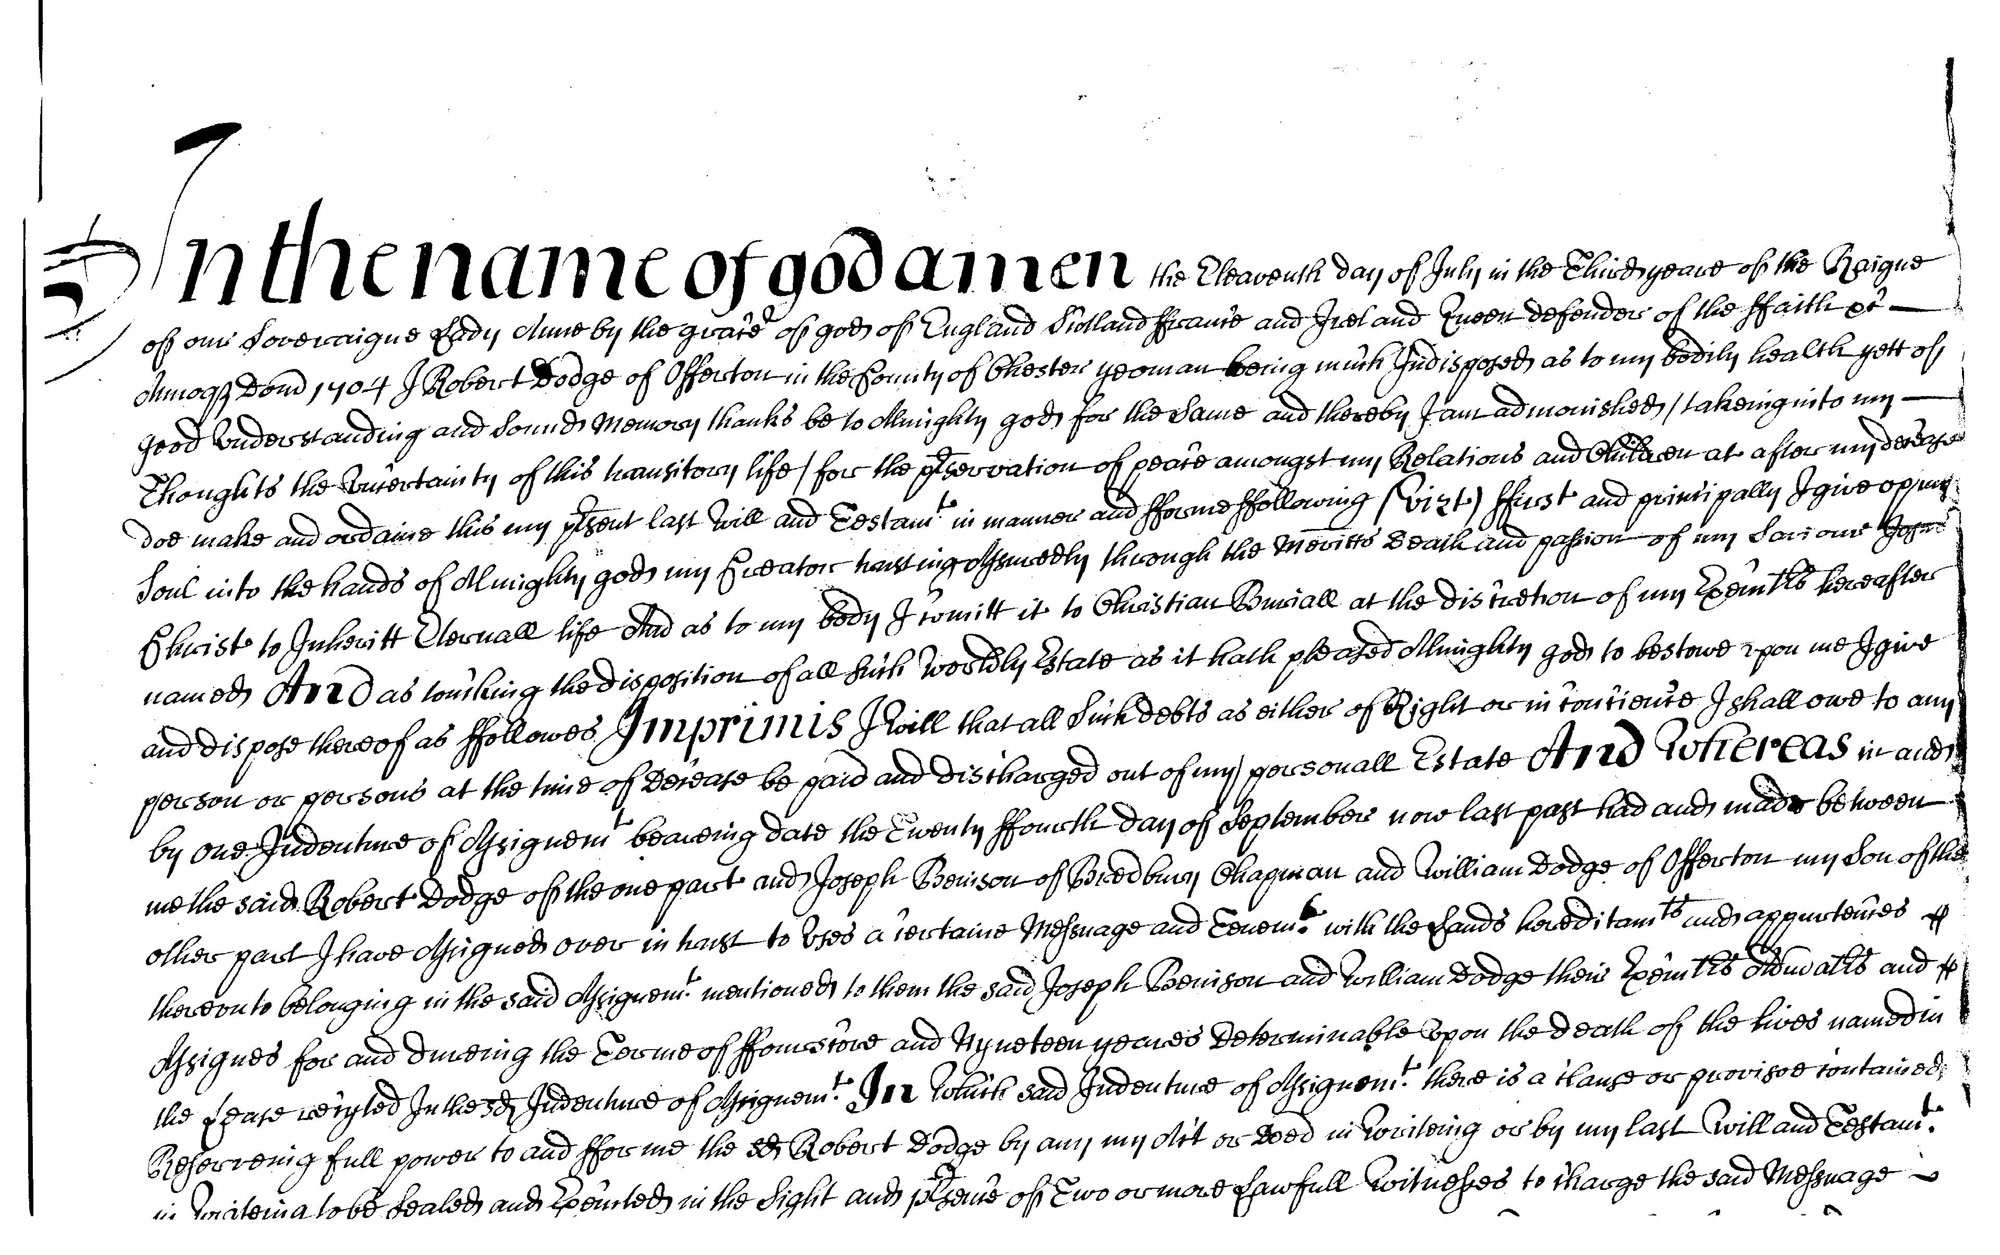 In the name of god amen the Eleaventh day of July in the Third yeare of the Raigne
of our Soveraigne Lady Anne by the grace of god of England Scotland ffrance and Ireland Queen defender of the ffaith &c —
Annoq Domi 1704 I Robert Dodge of Offerton in the County of Chester yeoman being much Indisposed as to my bodily health yett of
good Understanding and Sound Memory thanks be to Almighty god for the Same and thereby I am admonished / takeing into my —
Thoughts the Uncertainty of this transitory life / for the prservation of peace amongst my Relations and Children at after my decease
doe make and ordaine this my prsent last Will and Testamt in manner and fforme ffollowing (Vizt) ffirst and principally I give up my
Soul into the hands of Almighty god my Creator trusting Assuredly through the Meritts Death and passion of my Saviour Jesus
Christ to Inheritt Eternall life And as to my body I comitt it to Christian Buriall at the discretion of my Exēcutrs hereafter
named And as touching the disposition of all such Worldly Estate as it hath pleased Almighty god to bestowe upon me I give
and dispose thereof as ffollowes Imprimis I Will that all Such debts as either of Right or in Concience I shall owe to any
person or persons at the time of Decease be paid and discharged out of my personall Estate And Whereas in and
by one Indenture of Assignemt beareing date the Twenty ffourth day of September now last past had and made between
me the said Robert Dodge of the one part and Joseph Benison of Bredbury Chapman and William Dodge of Offerton my Son of the
other part I have Assigned over in trust to Uses a certaine Messuage and Tenemt with the Lands hereditamts and appurtences
thereunto belonging in the said Assignemt mentioned to them the said Joseph Benison and William Dodge their Exēcutrs Admratrs and
Assignes for and dureing the Terme of ffourscore and Nyneteen yeares Determinable Upon the death of the lives named in
the Lease recyted In the sd Indenture of Assignemt In Which said Indenture of Assignemt there is a Clause or provisoe contained
Reserveing full power to and ffor me the sd Robert Dodge by any my Act or Deed in Writeing or by my last Will and Testamt
in Writeing to be Sealed and Executed in the Sight and prsence of Two or more Lawfull Witnesses to Charge the said Messuage